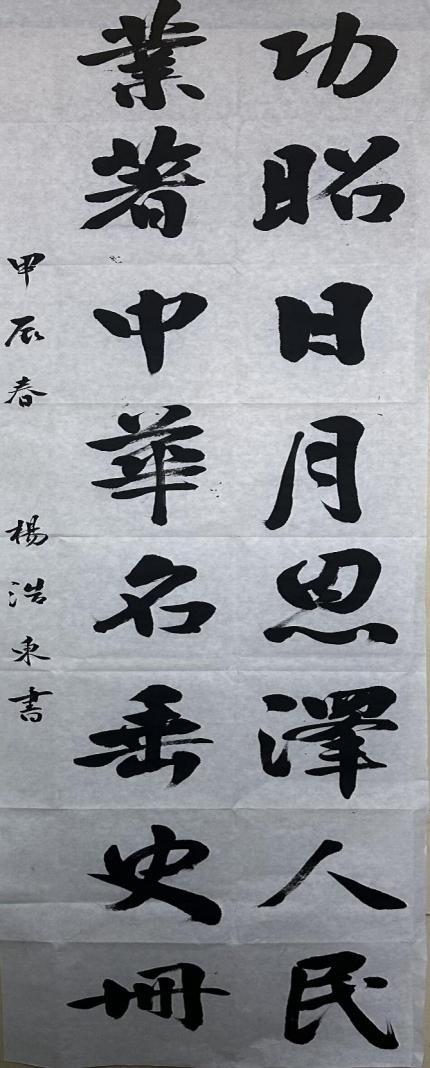 功昭日月恩澤人民
業著中華名垂史冊
甲辰春 楊浩東書